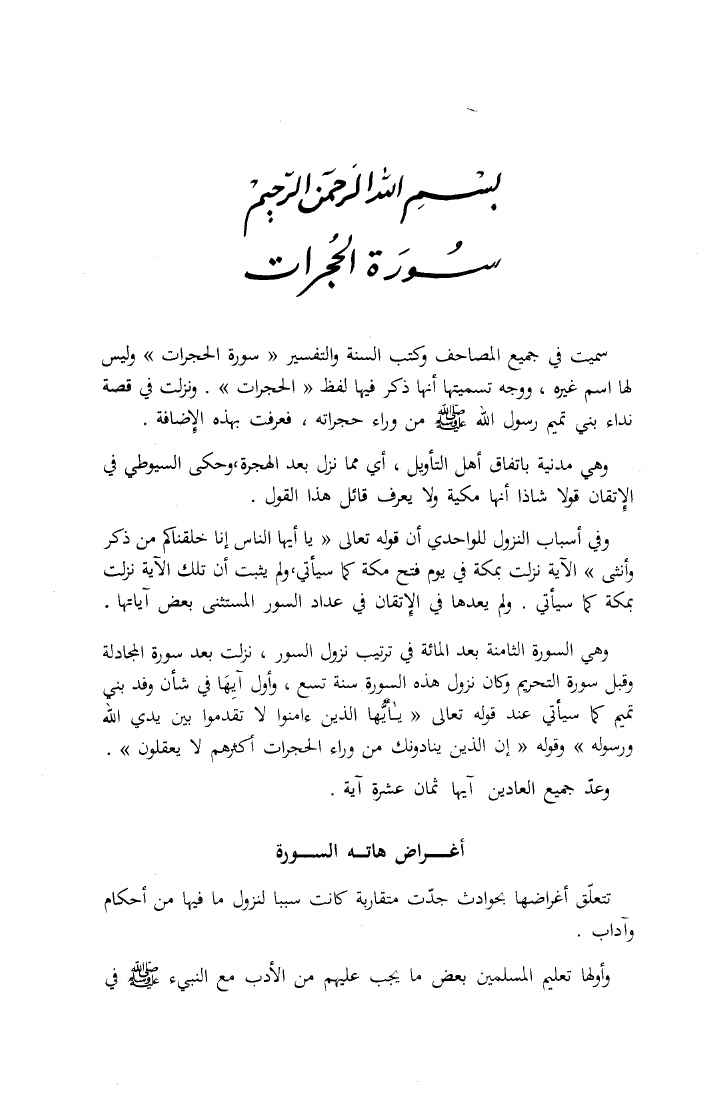 بسم الله الرحمن الرحيم
سورة الحجرات
سميت في جميع المصاحف وكتب السنة والتفسير « سورة الحجرات » وليس
لها اسم غيره ، ووجه تسميتها أنها ذكر فيها لفظ « الحجرات » . ونزلت في قصة
نداء بني تميم رسول الله ﷺ من وراء حجراته ، فعرفت بهذه الإضافة .
وهي مدنية باتفاق أهل التأويل ، أي مما نزل بعد الهجرة، وحكى السيوطي في
الإتقان قولا شاذا أنها مكية ولا يعرف قائل هذا القول .
وفي أسباب النزول للواحدي أن قوله تعالى « يا أيها الناس إنا خلقناكم من ذكر
وأنثى » الآية نزلت بمكة في يوم فتح مكة كما سيأتي، ولم يثبت أن تلك الآية نزلت
بمكة كما سيأتي . ولم يعدها في الإتقان في عداد السور المستثنى بعض آياتها .
وهي السورة الثامنة بعد المائة في ترتيب نزول السور ، نزلت بعد سورة المجادلة
وقبل سورة التحريم وكان نزول هذه السورة سنة تسع ، وأول آيها في شأن وفد بني
تميم كما سيأتي عند قوله تعالى « يـٰأيُّها الذين ءامنوا لا تقدموا بين يدي الله
ورسوله » وقوله « إن الذين ينادونك من وراء الحجرات أكثرهم لا يعقلون » .
وعدّ جميع العادين آيها ثمان عشرة آية .
أغـــراض هاتـه الســـورة
تتعلّق أغراضها بحوادث جدّت متقاربة كانت سببا لنزول ما فيها من أحكام
وآداب .
وأولها تعليم المسلمين بعض ما يجب عليهم من الأدب مع النبيء ﷺ في